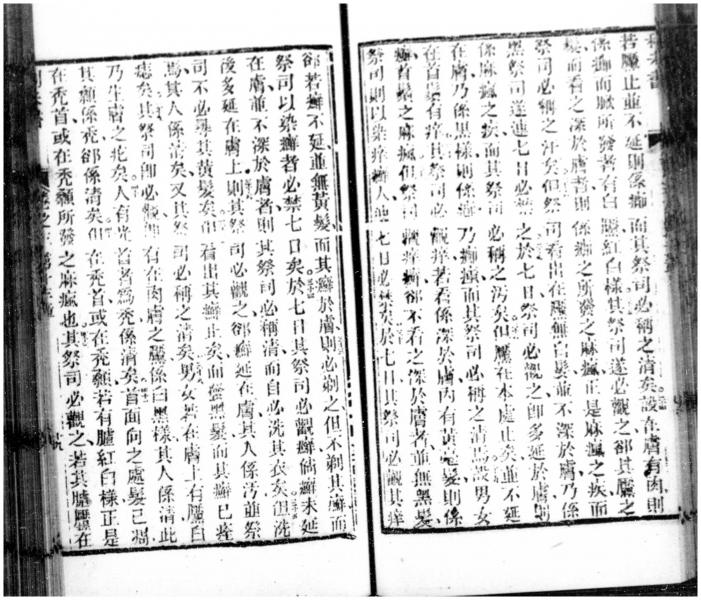 若黶止並不延則係癤而其祭司必稱之清矣設在膚有肉則
係癤而所發者有白黶紅白樣其祭司遂必觀之卻其黶之
髮而看之深於膚者則係癤之所發之麻瘋正是麻瘋之疾而
祭司必稱之汙矣但祭司看出在黶無白髮並不深於膚乃係
黑祭司遂連七日必禁之於七日祭司必觀之卽多延於膚則
係麻瘋之疾而其祭司必稱之汚矣但黶在本處止矣並不延
在膚乃係黑樣則係癤乃癤痕而其祭司必稱之清焉設男女
在首鬚有痒其祭司必觀痒若看係深於膚內有黃毫髮則係
癬首鬚之麻瘋但祭司觀痒癬卻不看之深於膚者並無黑髮
祭司則以染痒癬人連七日必禁矣於七日其祭司必觀其痒
卻若癬不延並無黃髮而其癬於膚則必剃之但不剃其癬而
祭司以染癬者必禁七日矣於七日其祭司必觀癬倘癬未延
在膚並不深於膚者則其祭司必稱清而自必洗其衣矣但洗
後多延在膚上則其祭司必觀之卻癬延在膚其人係汚並祭
司不必尋其黃髮矣但看出其癬止矣而黑髮而其癬已痊
焉其人係清矣又其祭司必稱之清矣男女在膚上有黶白
痣矣其祭司卽必觀倘若在肉膚之黶係白黑樣其人係清此
乃生膚之矣人有光首者為禿係清矣首面向之處髮已凋
其顱係禿卻係清矣但在禿首或在禿顱若有黶紅白樣正是
在禿首或在禿顱所發之麻瘋也其祭司必觀之若其黶在